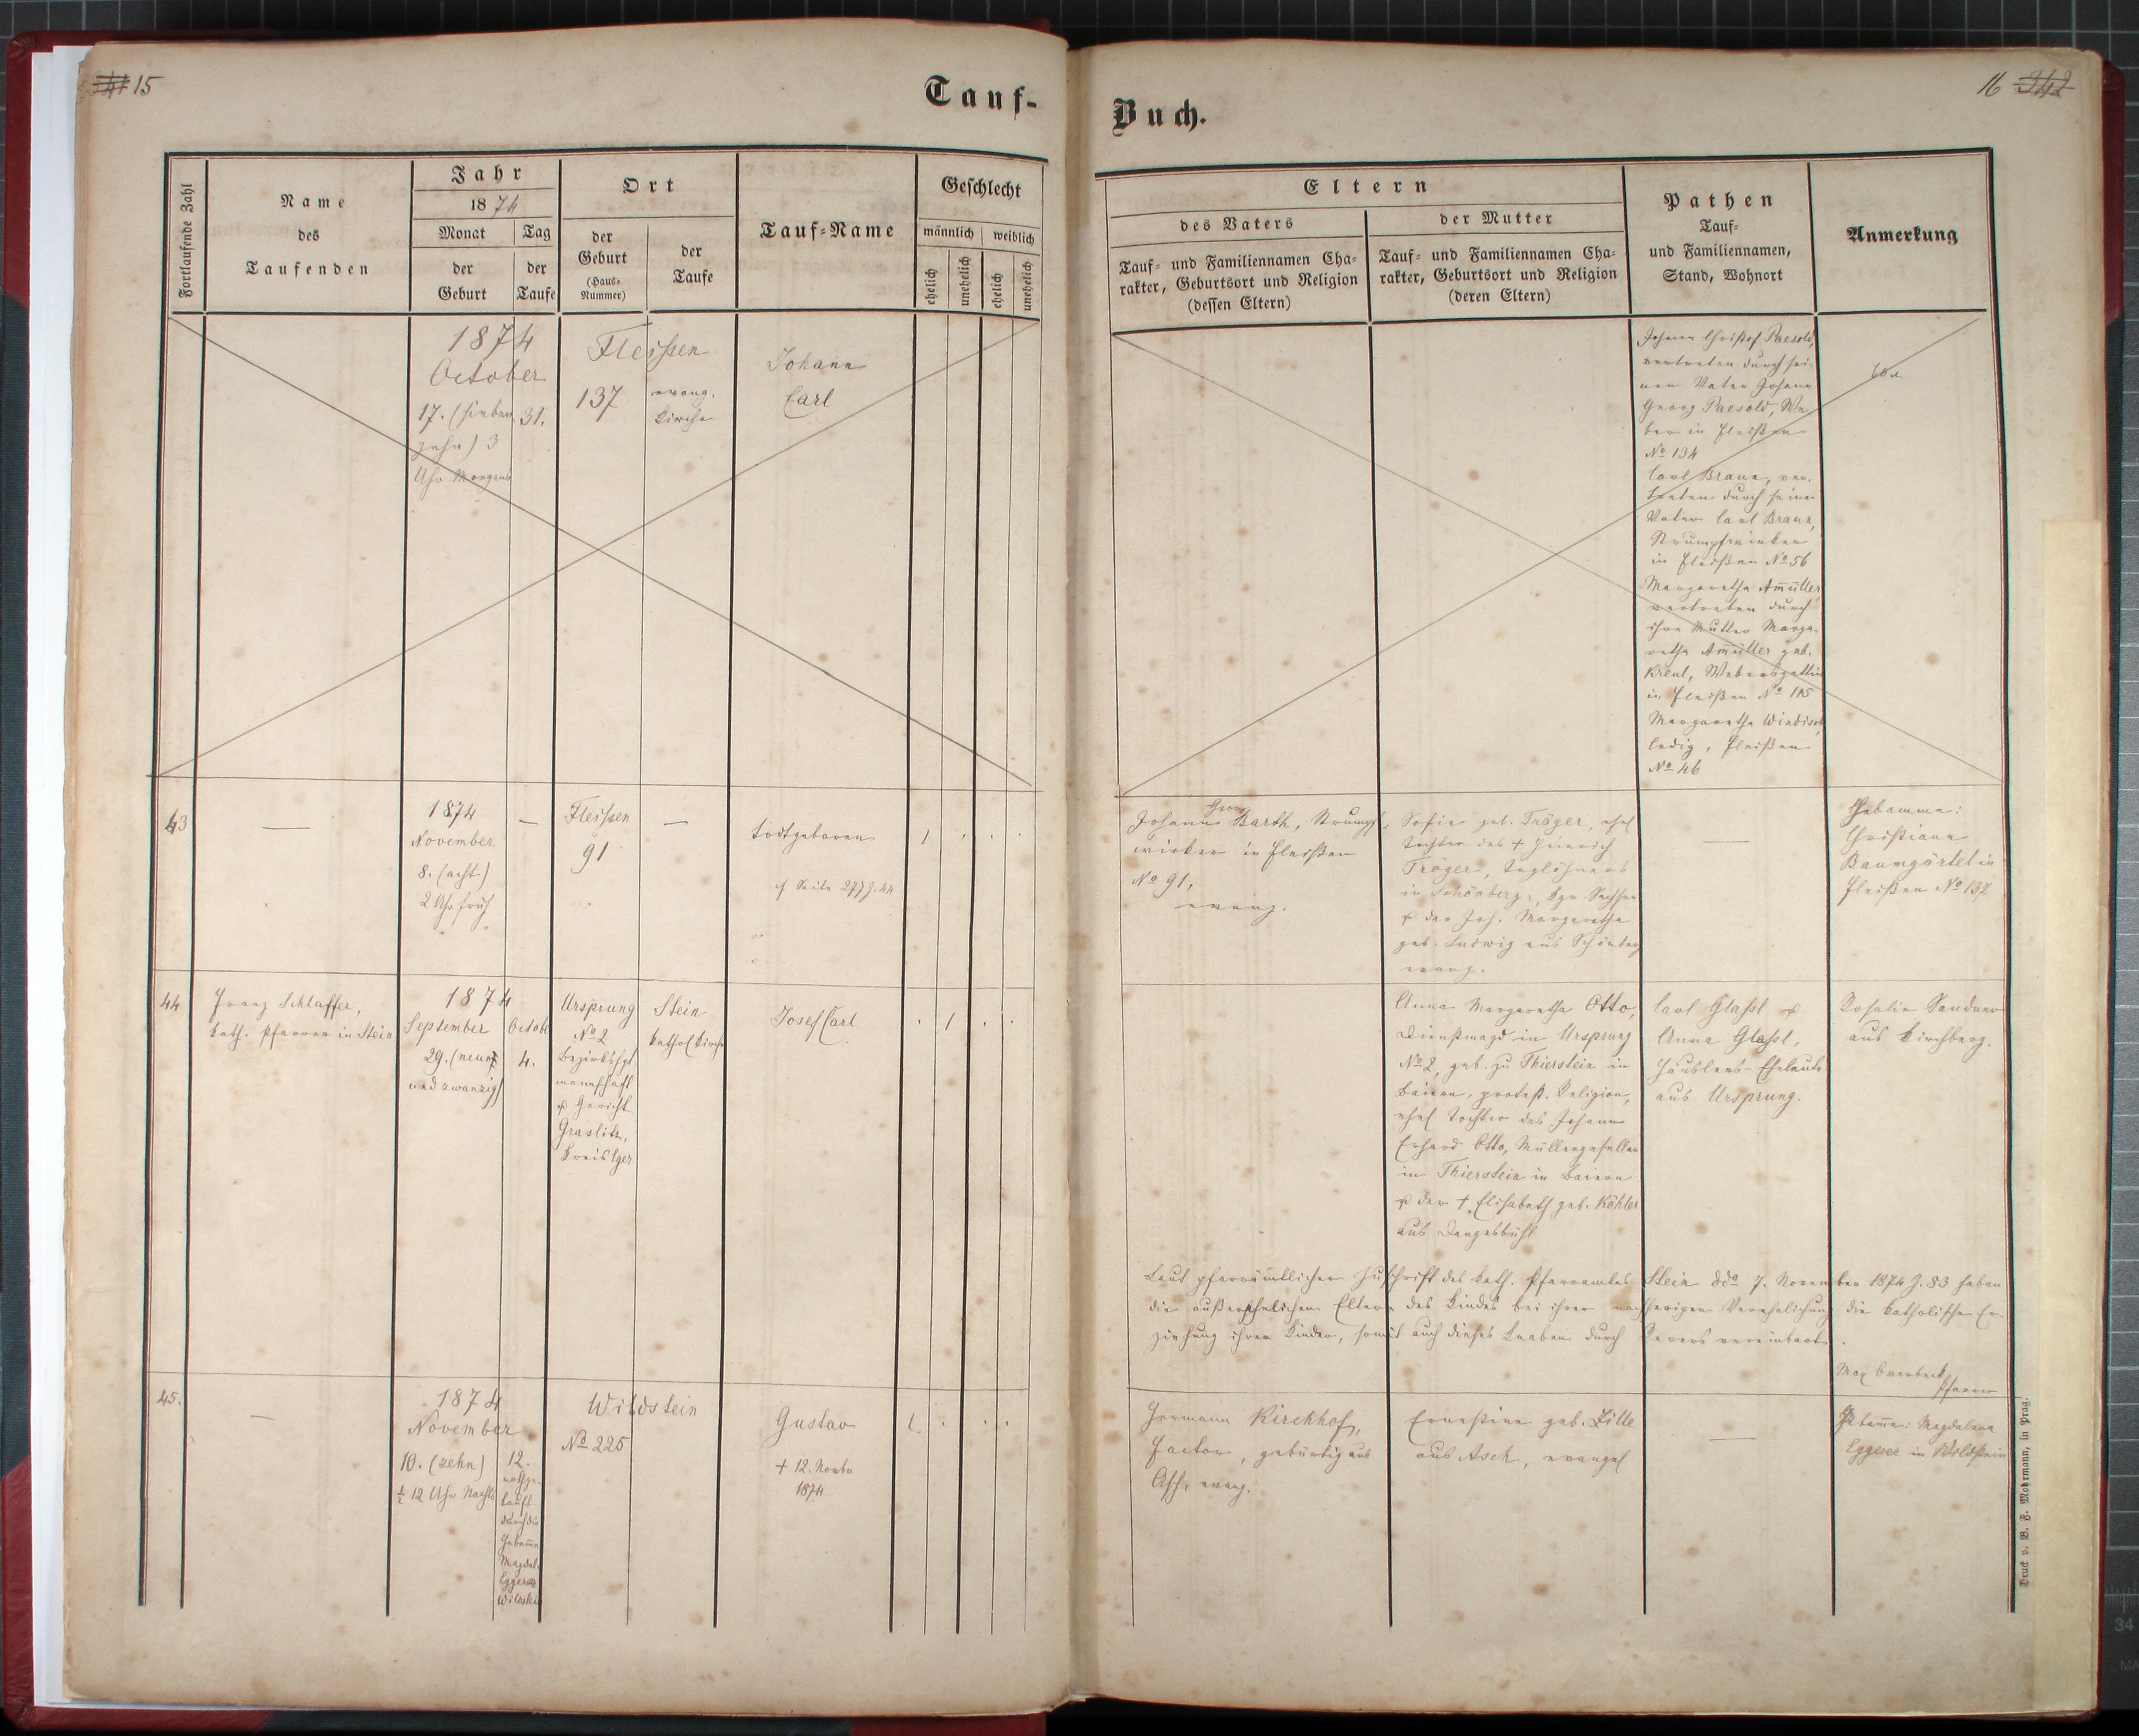 15
Tauf-
Fortlaufende Zahl
Name
des
Taufenden
Jahr
1874
Monat
Tag
der
Geburt
der
Taufe
Ort
der
Geburt
(Haus-
Nummer)
der
Taufe
Tauf-Name
Geschlecht
männlich
weiblich
ehelich
unehelich
ehelich
unehelich
1874
October
17. (sieben
zehn) 3
Uhr Morgens
31.
Fleissen
137
evang.
Kirche
Johann
Carl
43
—
1874
November
8. (acht)
2 Uhr früh
—
Fleissen
91
—
todtgeboren
cf Seite 277 J. 44
44
Franz Schlaffer,
kath. Pfarrer in Stein
1874
September
29. (neun
und zwanzig)
October
4.
Ursprung
No 2
Bezirkshpt
mannschaft
& Gericht
Graslitz,
Kreis Eger
Stein
kathol Kirche
Josef Carl
45.
—
1874
November
10. (zehn)
½ 12 Uhr Nachts
12.
nothge-
tauft
durch die
Hebame
Magdal.
Eggerer
Wildstein
Wildstein
No 225
Gustav
† 12. Novbr
1874
16 342
Buch.
Eltern
des Vaters
Tauf- und Familiennamen Cha-
rakter, Geburtsort und Religion
(dessen Eltern)
der Mutter
Tauf- und Familiennamen Cha-
rakter, Geburtsort und Religion
(deren Eltern)
Pathen
Tauf-
und Familiennamen,
Stand, Wohnort
Anmerkung
Johann Christof Paesold,
vertreten durch sei-
nen Vater Johann
Georg Paesold, We-
ber in Fleißen
No 134
Carl Braun, ver-
treten durch seinen
Vater Carl Braun,
Strumpfwirker
in Fleißen No 56
Margaretha Amüller,
vertreten durch
ihre Mutter Marga-
retha Amüller geb.
Kreul, Webersgattin
in Fleißen No 115
Margaretha Windisch,
ledig, Fleißen
No 46
Johann Georg Barth, Strumpf-
wirker in Fleißen
No 91,
evang.
Sofie geb. Tröger, ehel
Tochter des † Heinrich
Tröger, Taglöhners
in Schönberg, Kgr Sachsen
& der Joh. Margaretha
geb. Ludwig aus Schönberg
evang.
—
Hebamme:
Christiane
Baumgärtel in
Fleißen No 137
Anna Margaretha Otto,
Dienstmagd in Ursprung
No 2, geb. zu Thierstein in
Baiern, protest. Religion,
ehel Tochter des Johann
Erhard Otto, Müllergesellen
in Thierstein in Baiern
& der † Elisabeth geb. Köhler
aus
Carl Glassl &
Anna Glassl,
Häuslers-Eheleute
aus Ursprung.
Rosalia Sandner
aus Kirchberg.
Laut pfarrämtlicher Zuschrift des kath. Pfarramtes Stein ddo 7. November 1874 Z. 83 haben
die außerehelichen Eltern des Kindes bei ihrer nachherigen Verehelichung die katholische Er-
ziehung ihrer Kinder, somit auch dieses Knaben durch Revers vereinbart.
Max Overbeck
Pfarrer
Hermann Kirchhof,
Factor, gebürtig aus
Asch, evang.
Ernestine geb. Zille
aus Asch, evangel
—
Hebame: Magdalena
Eggerer in Wildstein
Druck v. B. F. Mohrmann, in Prag.
34